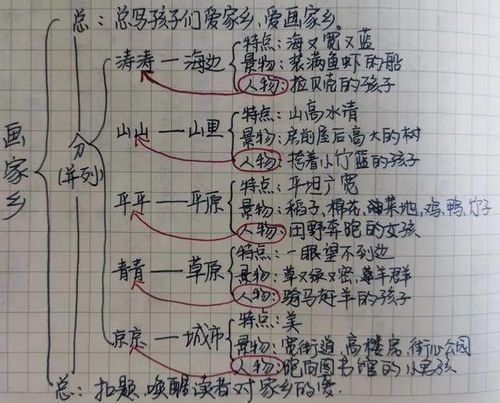 画家乡
总：总写孩子们爱家乡，爱画家乡。
分（并列）
涛涛 — 海边
特点：海又宽又蓝
景物：装满鱼虾的船
人物：捡贝壳的孩子
山山 — 山里
特点：山高水清
景物：房前屋后高大的树
人物：挎着小竹篮的孩子
平平 — 平原
特点：平坦广宽
景物：稻子、棉花、菜地、鸡、鸭、竹子
人物：田野奔跑的女孩
青青 — 草原
特点：一眼望不到边
景物：草又绿又密，羊群
人物：骑马赶羊的孩子
京京 — 城市
特点：美
景物：宽街道，高楼房，街心公园
人物：跑向图书馆的小男孩
总：扣题，唤醒读者对家乡的爱。